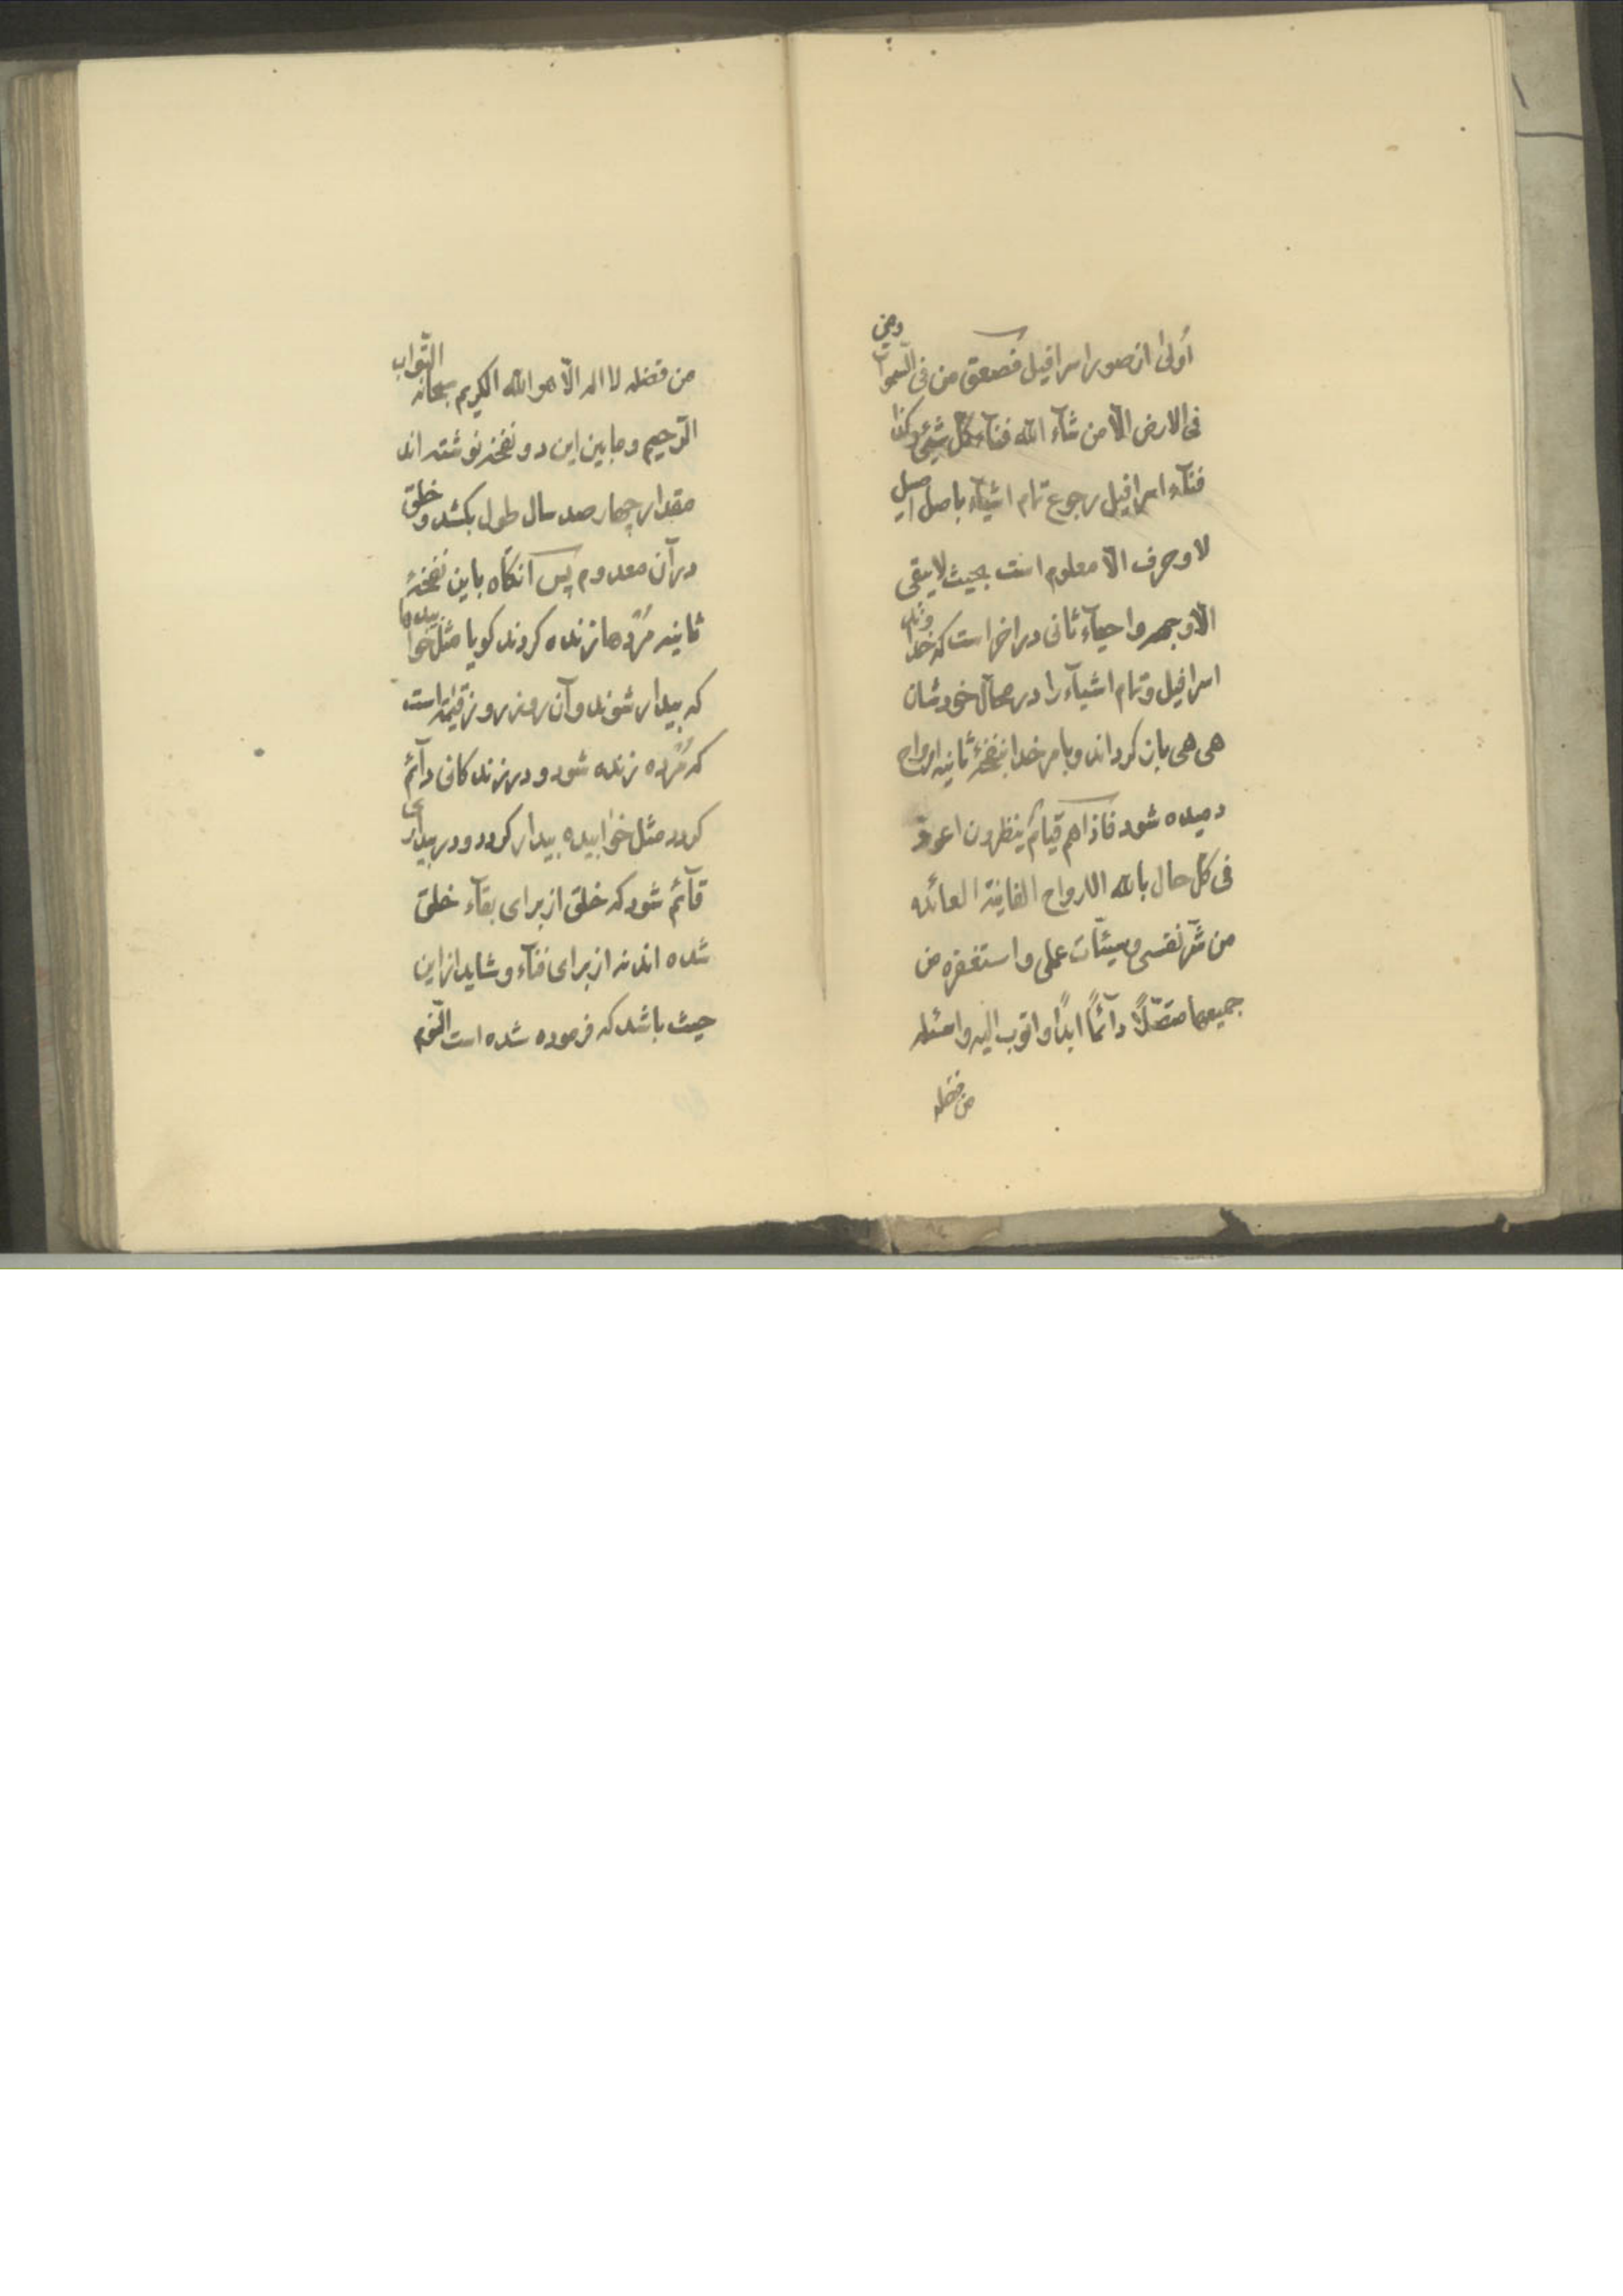 اُولیٰ از صور اسرافیل فصعق من فی السموات ومن
فی الارض الّا من شآء الله فنآء کلّ شیٔ وکذا
فنآء اسرافیل رجوع تمام اشیآء باصل اصیل
لا وحرف الّا معلوم است بحیث لایبقی
الّا وجهه واحیآء ثانی در اخر است که خدا وند
اسرافیل وتمام اشیآء را در محالّ خودشان
هی هی باز کرداند وبامر خدا بنفخهٔ ثانیه ارواح
دمیده شود فاذا هم قیامٌ ینظرون اعوذ
فی کلّ حال بالله الارواح الفانیة العائده
من شرّ نفسی وسیئآت عملی واستغفره من
جمیعها متصّلاً دآئماً ابداً واتوب الیه واسئله
من فضله
من فضله لا اله الّا هو الله الکریم سبحانه التّواب
الرّحیم وما بین این دو نفخه نوشته اند
مقدار چهار صد سال طول بکشد وخلق
در آن معدوم پس آنکاه باین نفخهٔ
ثانیه مُرّدها زنده کردند کویا مثل خوابیدها
که بیدار شوند وآن روز روز قیمة است
که مُرّده زنده شود ودر زندکانی دآئم
کردد مثل خوابیده بیدار کردد ودر بیداری
قآئم شود که خلق از برای بقآء خلق
شده اند نه از برای فنآء وشاید از این
حیث باشد که فرموده شده است النّوم